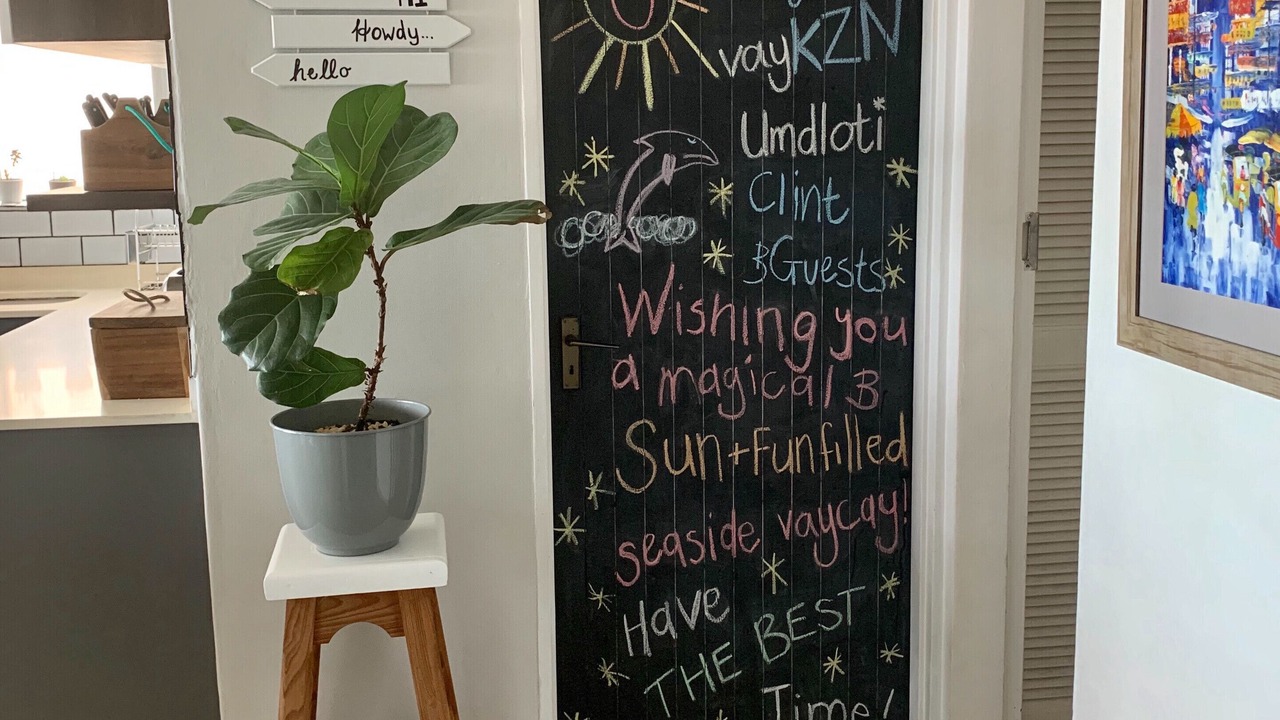 HI
Howdy...
hello
vayKZN
Umdloti
Clint
& Guests
Wishing you
a magical &
Sun+Funfilled
seaside vaycay!
Have
THE BEST
Time!